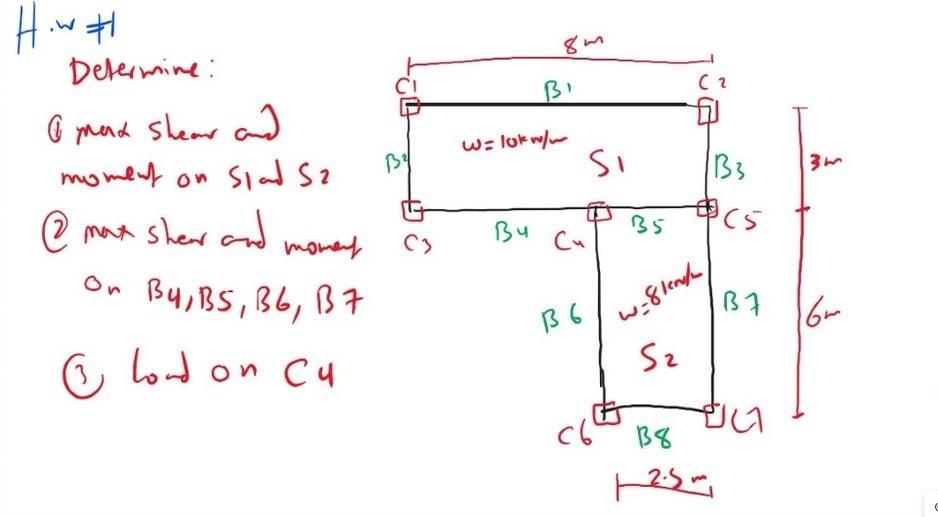 H.w #1
Determine:
① max shear and
moment on S1 and S2
② max shear and moment
on B4, B5, B6, B7
③ Load on C4
8m
C1
B1
C2
B2
w=10kN/m
S1
B3
3m
C3
B4
C4
B5
C5
B6
w=8kN/m
B7
6m
S2
C6
B8
C7
2.5m